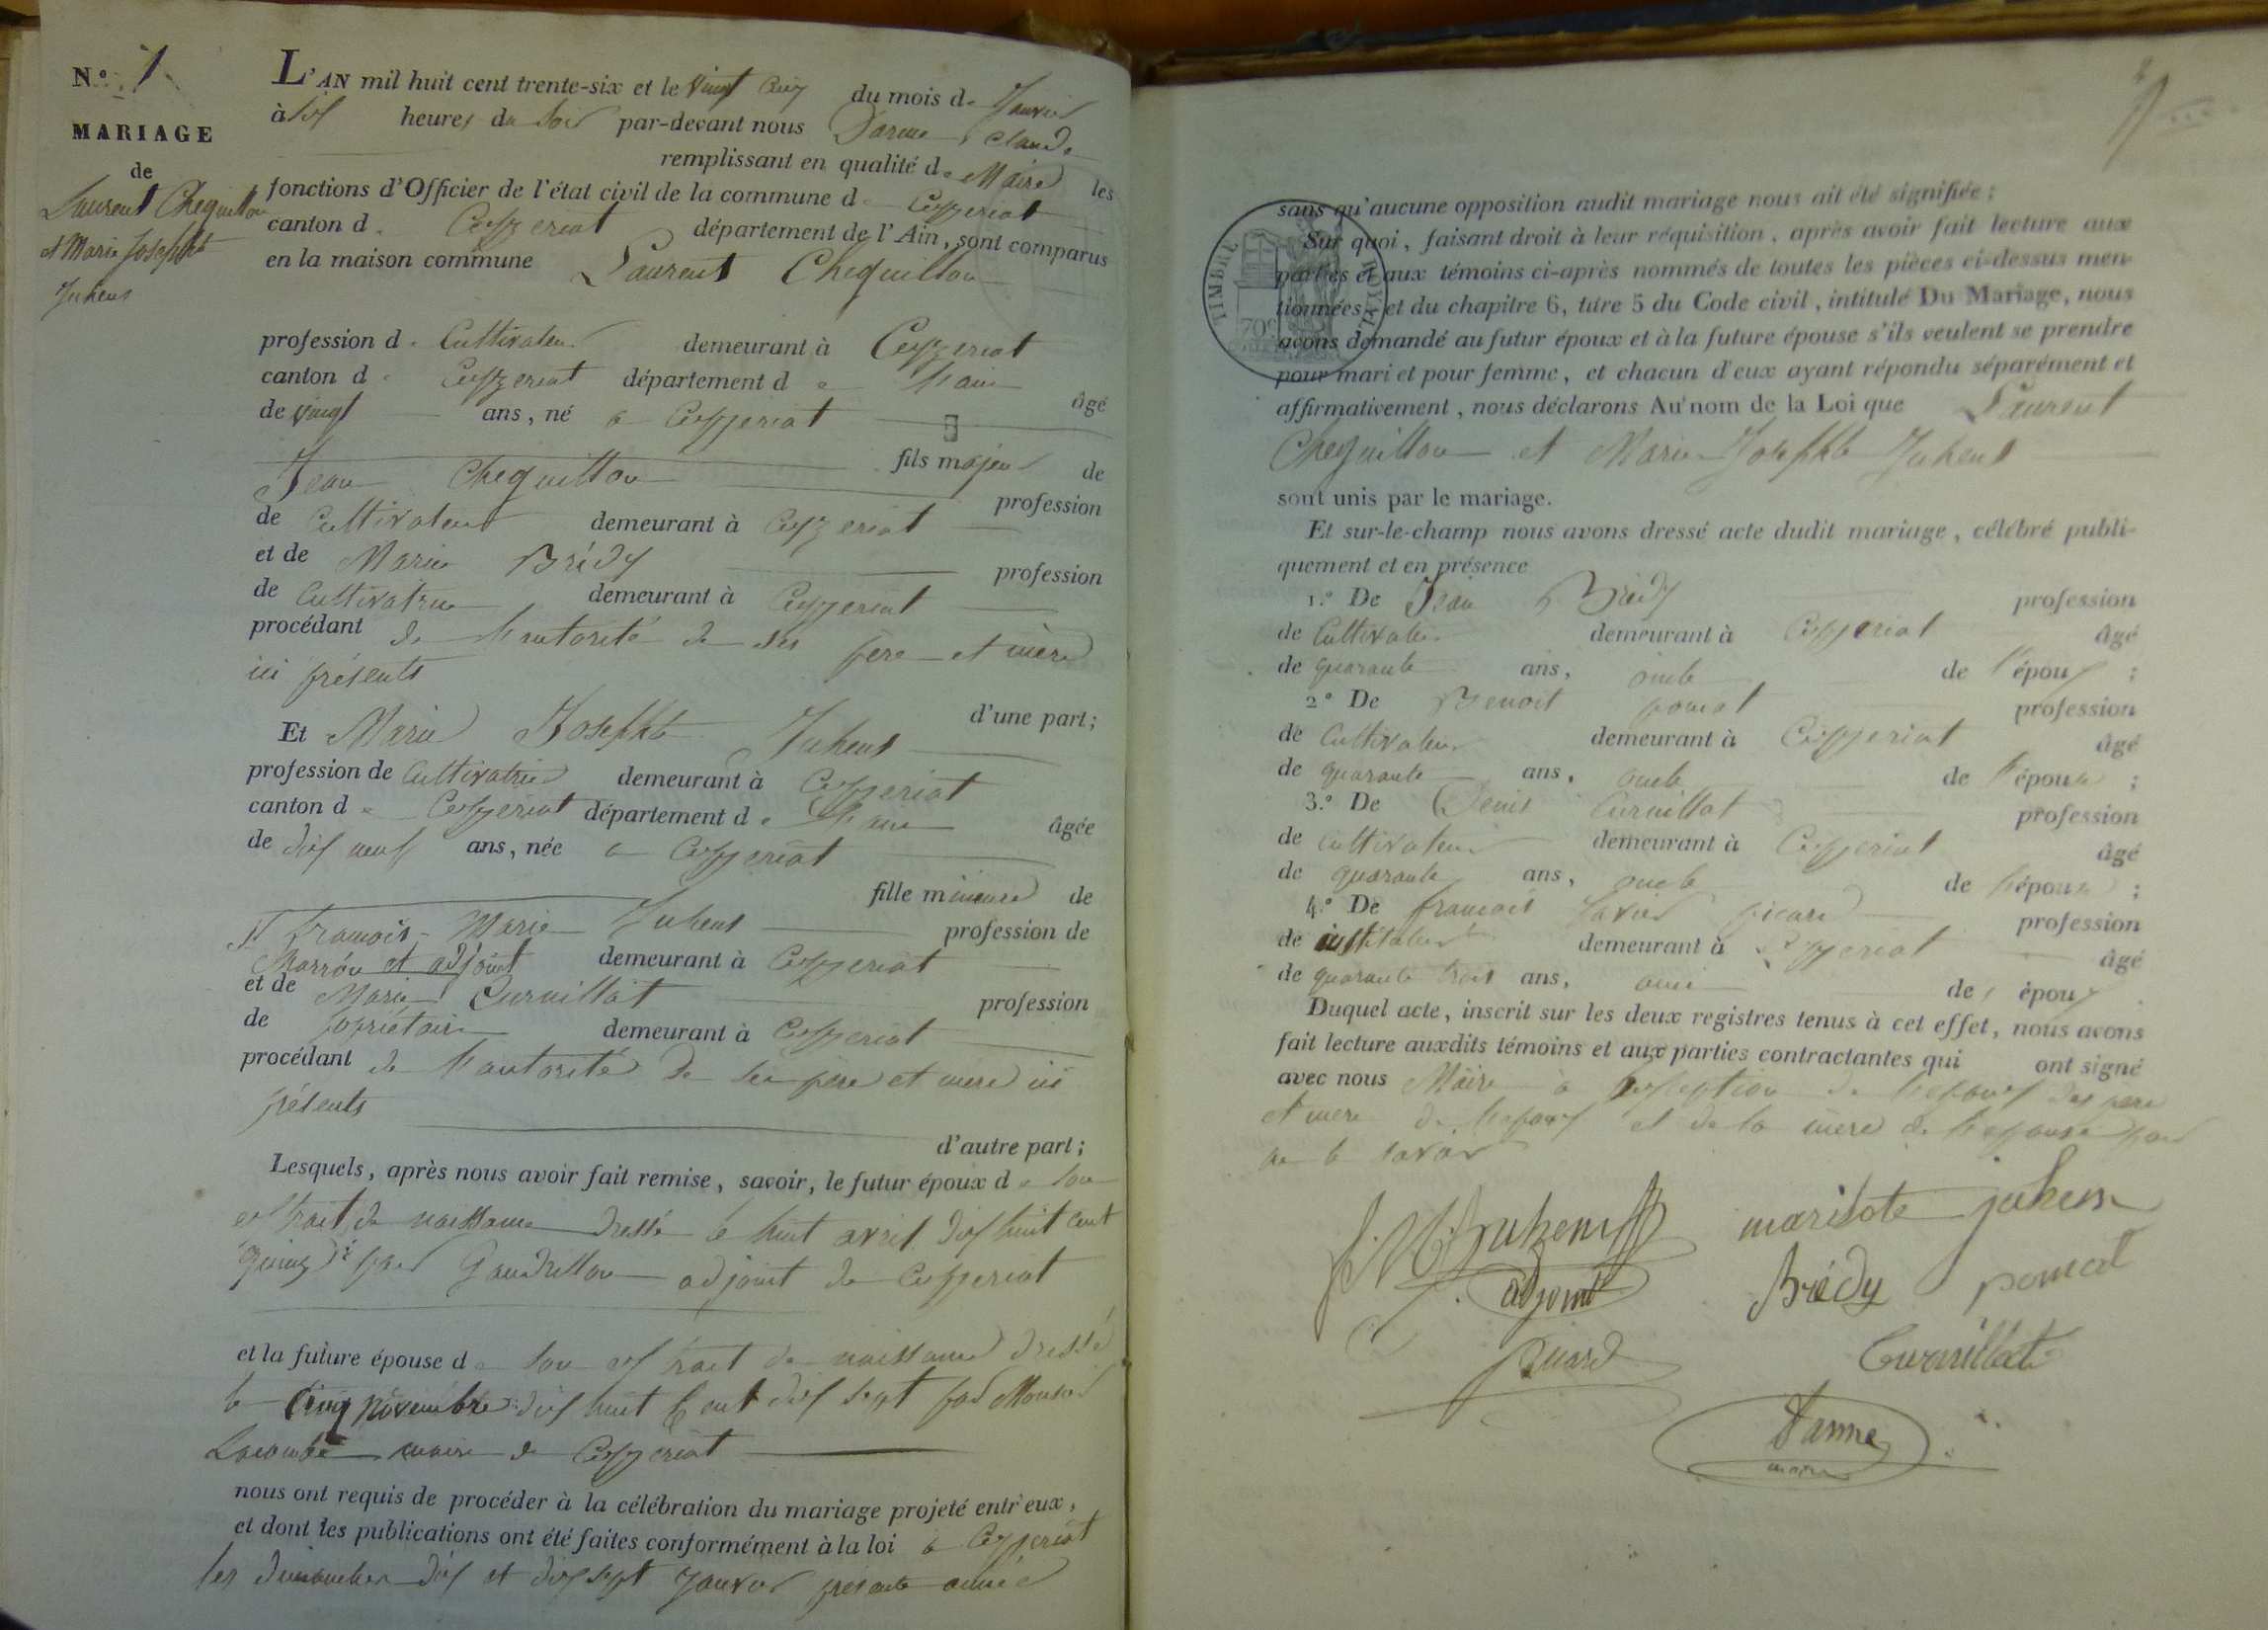 N.º 1
MARIAGE
de
Laurent Chequillon
et Marie Josephte
Juhens
L'AN mil huit cent trente-six et le vingt cinq du mois de Janvier
à six heures du soir par-devant nous Darme, Claude
remplissant en qualité de Maire les
fonctions d'Officier de l'état civil de la commune de Ceyzeriat
canton de Ceyzeriat département de l'Ain, sont comparus
en la maison commune Laurent Chequillon
profession de Cultivateur demeurant à Ceyzeriat
canton de Ceyzeriat département de l'ain âgé
de vingt ans, né à Ceyzeriat
fils majeur de
Jean Chequillon profession
de Cultivateur demeurant à Ceyzeriat
et de Marie Brédy profession
de Cultivatrice demeurant à Ceyzeriat
procédant de l'autorité de ses père et mère
ici présents
d'une part;
Et Marie Josephte Juhens
profession de Cultivatrice demeurant à Ceyzeriat
canton de Ceyzeriat département de l'ain âgée
de dix neuf ans, née à Ceyzeriat
fille mineure de
françois Marie Juhens profession de
et adjoint demeurant à Ceyzeriat
et de Marie Curnillat profession
de propriétaire demeurant à Ceyzeriat
procédant de l'autorité de ses père et mère ici
présents
d'autre part;
Lesquels, après nous avoir fait remise, savoir, le futur époux de son
extrait de naissance dressé le huit avril dix huit cent
quinze par Gaudrillon adjoint de Ceyzeriat
et la future épouse de son extrait de naissance dressé
le cinq novembre dix huit Cent dix sept par Monsieur
Lacombe maire de Ceyzeriat
nous ont requis de procéder à la célébration du mariage projeté entr'eux,
et dont les publications ont été faites conformément à la loi à Ceyzeriat
les dimanches dix et dix sept Janvier présente année
sans qu'aucune opposition audit mariage nous ait été signifiée;
Sur quoi, faisant droit à leur réquisition, après avoir fait lecture aux
parties et aux témoins ci-après nommés de toutes les pièces ci-dessus men-
tionnées, et du chapitre 6, titre 5 du Code civil, intitulé Du Mariage, nous
avons demandé au futur époux et à la future épouse s'ils veulent se prendre
pour mari et pour femme, et chacun d'eux ayant répondu séparément et
affirmativement, nous déclarons Au nom de la Loi que Laurent
Chequillon et Marie Josephte Juhens
sont unis par le mariage.
Et sur-le-champ nous avons dressé acte dudit mariage, célébré publi-
quement et en présence
1.º De Jean Brédy profession
de Cultivateur demeurant à Ceyzeriat âgé
de quarante ans, oncle de l'époux;
2º De Benoit pomat profession
de Cultivateur demeurant à Ceyzeriat âgé
de quarante ans, oncle de l'épouse;
3.º De Denis Curnillat profession
de cultivateur demeurant à Ceyzeriat âgé
de quarante ans, oncle de l'épouse;
4.º De françois Xavier picard profession
de instituteur demeurant à Ceyzeriat âgé
de quarante trois ans, ami de l'époux.
Duquel acte, inscrit sur les deux registres tenus à cet effet, nous avons
fait lecture auxdits témoins et aux parties contractantes qui ont signé
avec nous Maire à l'exception de l'époux des père
et mere de l'epoux et de la mere de l'epouse pour
ne le savoir
TIMBRE ROYAL
70c
f. M. Juhens marisote juhens
adjoint Brédy pomat
picard Curnillat
Darme
maire